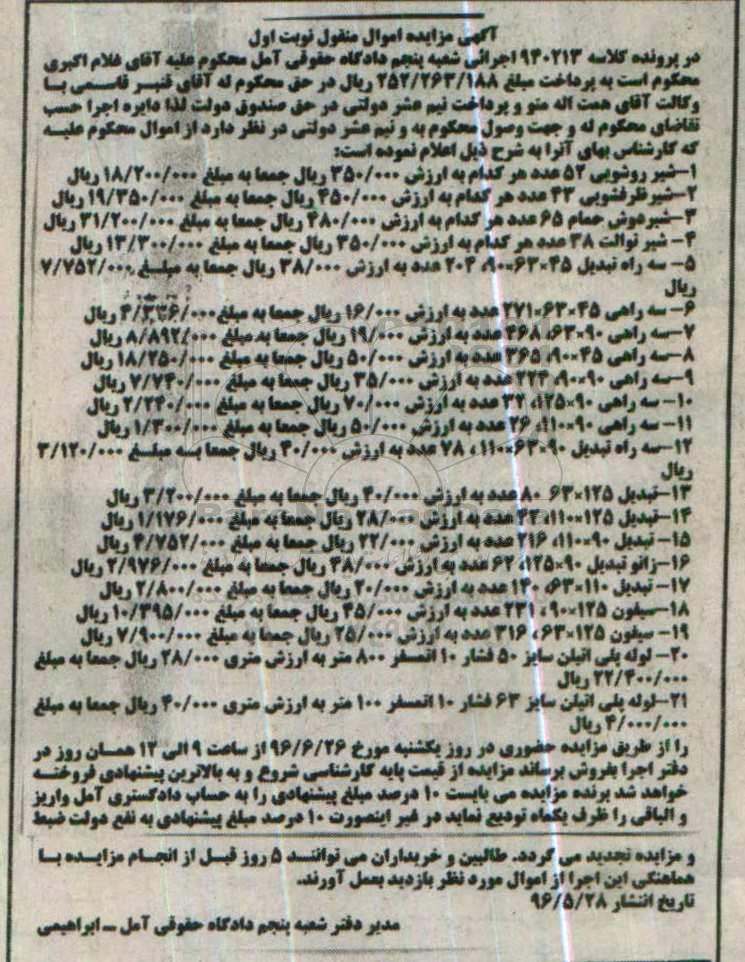 آگهی مزایده اموال منقول نوبت اول
در پرونده کلاسه ۹۴۰۲۱۳ اجرائی شعبه پنجم دادگاه حقوقی آمل محکوم علیه آقای غلام اکبری
محکوم است به پرداخت مبلغ ۲۵۲/۲۶۳/۱۸۸ ریال در حق محکوم له آقای قنبر قاسمی با
وکالت آقای همت اله منو و پرداخت نیم عشر دولتی در حق صندوق دولت لذا دایره اجرا حسب
تقاضای محکوم له و جهت وصول محکوم به و نیم عشر دولتی در نظر دارد از اموال محکوم علیه
که کارشناس بهای آنرا به شرح ذیل اعلام نموده است:
۱–شیر روشویی ۵۲ عدد هر کدام به ارزش ۳۵۰/۰۰۰ ریال جمعا به مبلغ ۱۸/۲۰۰/۰۰۰ ریال
۲–شیر ظرفشویی ۴۳ عدد هر کدام به ارزش ۴۵۰/۰۰۰ ریال جمعا به مبلغ ۱۹/۳۵۰/۰۰۰ ریال
۳–شیردوش حمام ۶۵ عدد هر کدام به ارزش ۴۸۰/۰۰۰ ریال جمعا به مبلغ ۳۱/۲۰۰/۰۰۰ ریال
۴– شیر توالت ۳۸ عدد هر کدام به ارزش ۳۵۰/۰۰۰ ریال جمعا به مبلغ ۱۳/۳۰۰/۰۰۰ ریال
۵– سه راه تبدیل ۴۵×۶۳×۹۰، ۲۰۴ عدد به ارزش ۳۸/۰۰۰ ریال جمعا به مبلغ ۷/۷۵۲/۰۰۰
ریال
۶– سه راهی ۴۵×۶۳×۲۷۱ عدد به ارزش ۱۶/۰۰۰ ریال جمعا به مبلغ ۴/۳۳۶/۰۰۰ ریال
۷–سه راهی ۹۰×۶۳، ۴۶۸ عدد به ارزش ۱۹/۰۰۰ ریال جمعا به مبلغ ۸/۸۹۲/۰۰۰ ریال
۸–سه راهی ۴۵×۹۰، ۳۶۵ عدد به ارزش ۵۰/۰۰۰ ریال جمعا به مبلغ ۱۸/۲۵۰/۰۰۰ ریال
۹–سه راهی ۹۰×۹۰، ۲۲۴ عدد به ارزش ۳۵/۰۰۰ ریال جمعا به مبلغ ۷/۷۴۰/۰۰۰ ریال
۱۰– سه راهی ۹۰×۱۲۵، ۳۲ عدد به ارزش ۷۰/۰۰۰ ریال جمعا به مبلغ ۲/۲۴۰/۰۰۰ ریال
۱۱– سه راهی ۹۰×۱۱۰، ۲۶ عدد به ارزش ۵۰/۰۰۰ ریال جمعا به مبلغ ۱/۳۰۰/۰۰۰ ریال
۱۲–سه راه تبدیل ۹۰×۶۳×۱۱۰ ، ۷۸ عدد به ارزش ۴۰/۰۰۰ ریال جمعا به مبلغ ۳/۱۲۰/۰۰۰
ریال
۱۳–تبدیل ۱۲۵×۶۳ ۸۰ عدد به ارزش ۴۰/۰۰۰ ریال جمعا به مبلغ ۳/۲۰۰/۰۰۰ ریال
۱۴–تبدیل ۱۲۵×۱۱۰، ۴۲ عدد به ارزش ۲۸/۰۰۰ ریال جمعا به مبلغ ۱/۱۷۶/۰۰۰ ریال
۱۵– تبدیل ۹۰×۱۱۰، ۲۱۶ عدد به ارزش ۲۲/۰۰۰ ریال جمعا به مبلغ ۴/۷۵۲/۰۰۰ ریال
۱۶–زانو تبدیل ۹۰×۱۲۵، ۶۲ عدد به ارزش ۴۸/۰۰۰ ریال جمعا به مبلغ ۲/۹۷۶/۰۰۰ ریال
۱۷– تبدیل ۱۱۰×۶۳، ۱۴۰ عدد به ارزش ۲۰/۰۰۰ ریال جمعا به مبلغ ۲/۸۰۰/۰۰۰ ریال
۱۸–سیفون ۱۲۵×۹۰ ، ۲۳۱ عدد به ارزش ۴۵/۰۰۰ ریال جمعا به مبلغ ۱۰/۳۹۵/۰۰۰ ریال
۱۹– سیفون ۱۲۵×۶۳ ، ۳۱۶ عدد به ارزش ۲۵/۰۰۰ ریال جمعا به مبلغ ۷/۹۰۰/۰۰۰ ریال
۲۰– لوله پلی اتیلن سایز ۵۰ فشار ۱۰ اتمسفر ۸۰۰ متر به ارزش متری ۲۸/۰۰۰ ریال جمعا به مبلغ
۲۲/۴۰۰/۰۰۰ ریال
۲۱–لوله پلی اتیلن سایز ۶۳ فشار ۱۰ اتمسفر ۱۰۰ متر به ارزش متری ۴۰/۰۰۰ ریال جمعا به مبلغ
۴/۰۰۰/۰۰۰ ریال
را از طریق مزایده حضوری در روز یکشنبه مورخ ۹۶/۶/۲۶ از ساعت ۹ الی ۱۲ همان روز در
دفتر اجرا بفروش برساند مزایده از قیمت پایه کارشناسی شروع و به بالاترین پیشنهادی فروخته
خواهد شد برنده مزایده می بایست ۱۰ درصد مبلغ پیشنهادی را به حساب دادگستری آمل واریز
و الباقی را ظرف یکماه تودیع نماید در غیر اینصورت ۱۰ درصد مبلغ پیشنهادی به نفع دولت ضبط
و مزایده تجدید می گردد. طالبین و خریداران می توانند ۵ روز قبل از انجام مزایده با
هماهنگی این اجرا از اموال مورد نظر بازدید بعمل آورند.
تاریخ انتشار ۹۶/۵/۲۸
مدیر دفتر شعبه پنجم دادگاه حقوقی آمل – ابراهیمی